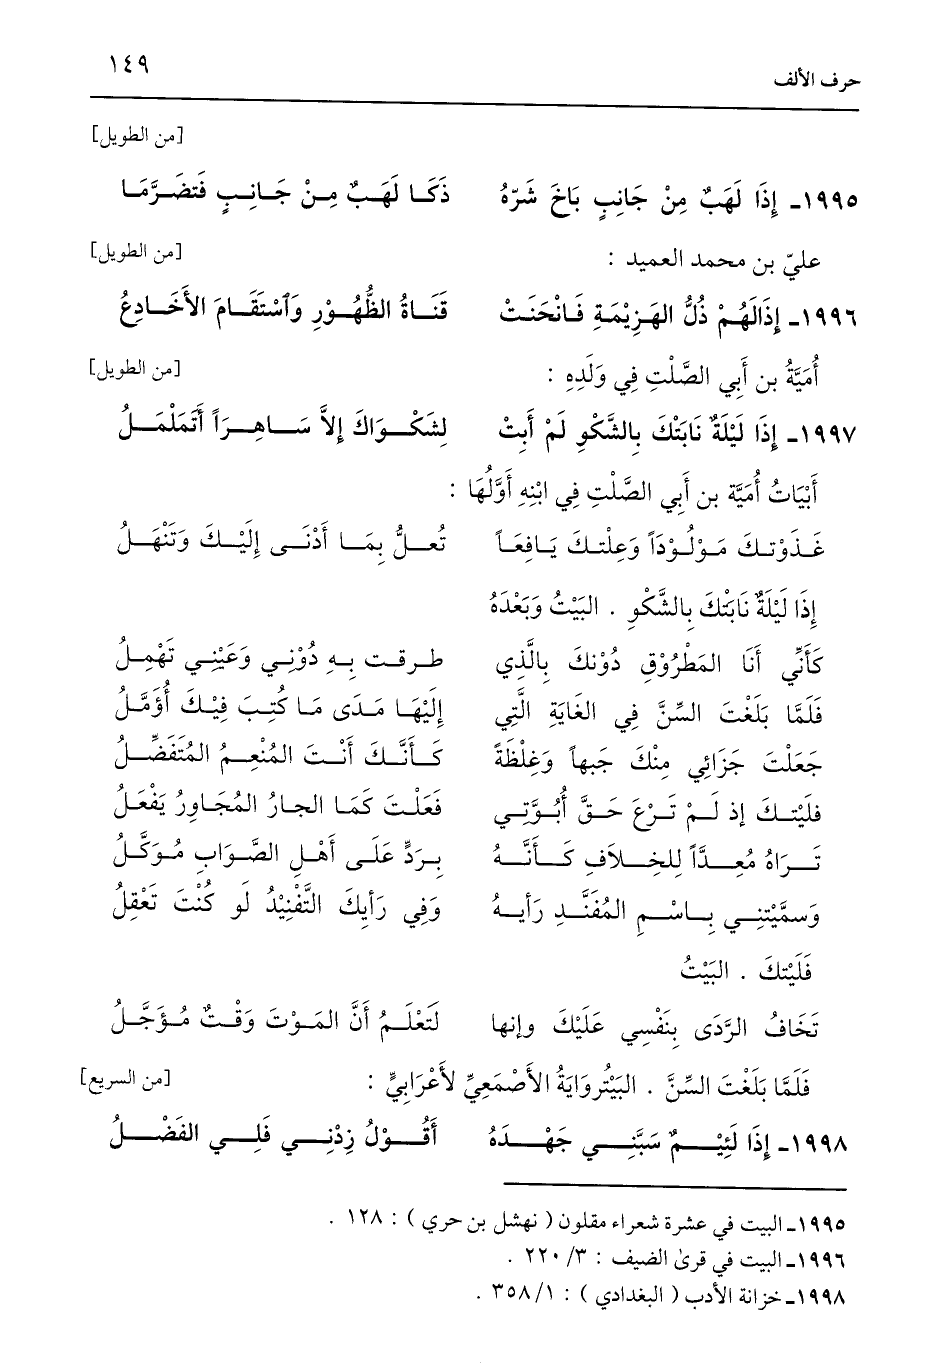 ١٤٩
حرف الألف
[من الطويل]
١٩٩٥ـ إِذَا لَهَبٌ مِنْ جَانِبٍ بَاخَ شَرّهُ ذَكَا لَهَبٌ مِنْ جَانِبٍ فَتَضَرَّمَا
عليّ بن محمد العميد : [من الطويل]
١٩٩٦ـ إِذَالَهُمْ ذُلُّ الهَزِيْمَةِ فَانْحَنَتْ قَنَاةُ الظُّهُوْرِ وَٱسْتَقَامَ الأَخَادِعُ
أُمَيَّةُ بن أَبي الصَّلْتِ فِي وَلَدِهِ : [من الطويل]
١٩٩٧ـ إِذَا لَيْلَةٌ نَابَتْكَ بِالشَّكْوِ لَمْ أَبِتْ لِشَكْوَاكَ إِلاَّ سَاهِرَاً أَتَمَلْمَلُ
أَبْيَاتُ أُمَيَّة بن أَبي الصَّلْتِ فِي ابْنِهِ أَوَّلُهَا :
غَذَوْتكَ مَوْلُوْدَاً وَعِلْتكَ يَافِعَاً تُعَلُّ بِمَا أَدْنَى إِلَيْكَ وَتَنْهَلُ
إِذَا لَيْلَةٌ نَابَتْكَ بِالشَّكْوِ . البَيْتُ وَبَعْدَهُ
كَأَنِّي أَنَا المَطْرُوْقِ دُوْنكَ بِالَّذِي طرقت بِهِ دُوْنِي وَعَيْنِي تَهْمِلُ
فَلَمَّا بَلَغْتَ السِّنَّ فِي الغَايَةِ الَّتِي إِلَيْهَا مَدَى مَا كُتِبَ فِيْكَ أُؤَمِّلُ
جَعَلْتَ جَزَائِي مِنْكَ جَبهاً وَغِلْظَةً كَأَنَّكَ أَنْتَ المُنْعِمُ المُتَفَضِّلُ
فَلَيْتكَ إِذ لَمْ تَرْعَ حَقَّ أُبُوَّتِي فَعَلْتَ كَمَا الجارُ المُجَاوِرُ يَفْعَلُ
تَرَاهُ مُعِدَّاً لِلخِلاَفِ كَأَنَّهُ بِرَدٍّ عَلَى أَهْلِ الصَّوَابِ مُوَكَّلُ
وَسَمَّيْتِنِي بِاسْمِ المُفَنَّدِ رَأيهُ وَفِي رَأيِكَ التَّفْنِيْدُ لَو كُنْتَ تَعْقِلُ
فَلَيْتكَ . البَيْتُ
تَخَافُ الرَّدَى بِنَفْسِي عَلَيْكَ وإنها لَتَعْلَمُ أَنَّ المَوْتَ وَقْتٌ مُؤَجَّلُ
فَلَمَّا بَلَغْتَ السِّنَّ . البَيْتُروَايَةُ الأَصْمَعِيِّ لأَعْرَابِيٍّ : [من السريع]
١٩٩٨ـ إِذَا لَئِيْمٌ سَبَّنِي جَهْدَهُ أَقُوْلُ زِدْنِي فَلِي الفَضْلُ
١٩٩٥ـ البيت في عشرة شعراء مقلون ( نهشل بن حري ) : ١٢٨ .
١٩٩٦ـ البيت في قرىٰ الضيف : ٣/ ٢٢٠ .
١٩٩٨ـ خزانة الأدب ( البغدادي ) : ١/ ٣٥٨ .